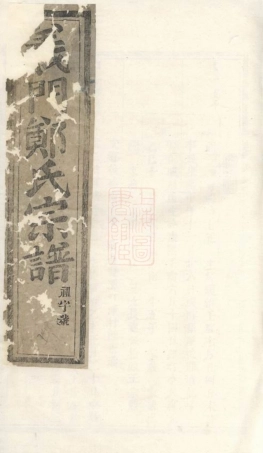 義門鄭氏宗譜
上海圖書館藏